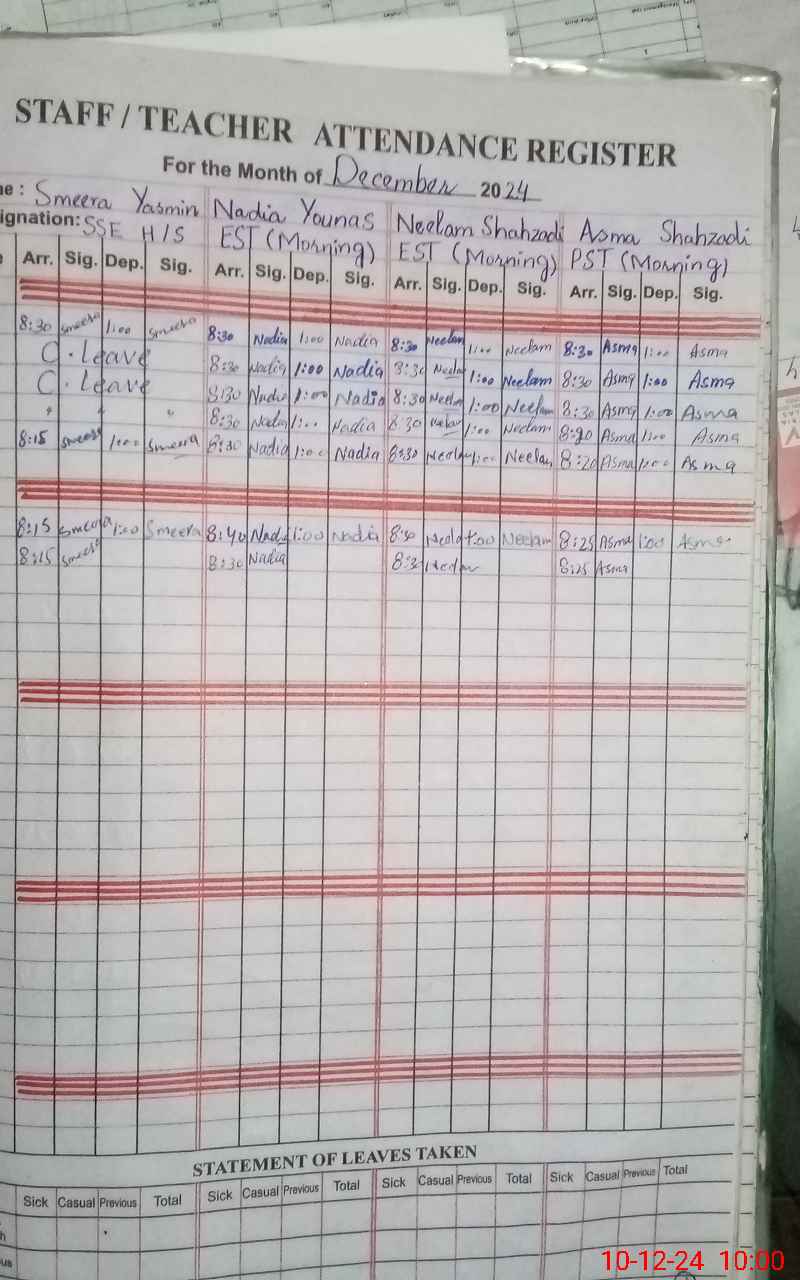 STAFF / TEACHER ATTENDANCE REGISTER
For the Month of December 2024
e : Smeera Yasmin Nadia Younas Neelam Shahzadi Asma Shahzadi
ignation: SSE H/S EST (Morning) EST (Morning) PST (Morning)
Arr. Sig. Dep. Sig. Arr. Sig. Dep. Sig. Arr. Sig. Dep. Sig. Arr. Sig. Dep. Sig.
8:30 Smeera 1:00 Smeera 8:30 Nadia 1:00 Nadia 8:30 Neelam 1:00 Neelam 8:30 Asma 1:00 Asma
C. Leave 8:30 Nadia 1:00 Nadia 8:30 Neelam 1:00 Neelam 8:30 Asma 1:00 Asma
C. Leave 8:30 Nadia 1:00 Nadia 8:30 Neelam 1:00 Neelam 8:30 Asma 1:00 Asma
" " " 8:30 Nadia 1:00 Nadia 8:30 Neelam 1:00 Neelam Asma 1:00 Asma
8:15 Smeera 1:00 Smeera 8:30 Nadia 1:00 Nadia 8:30 Neelam 1:00 Neelam 8:20 Asma 1:00 Asma
8:15 Smeera 1:00 Smeera 8:40 Nadia 1:00 Nadia 8:30 Neelam 1:00 Neelam 8:25 Asma 1:00 Asma
8:15 Smeera 8:30 Nadia 8:30 Neelam 8:25 Asma
STATEMENT OF LEAVES TAKEN
Sick Casual Previous Total Sick Casual Previous Total Sick Casual Previous Total Sick Casual Previous Total
10-12-24 10:00